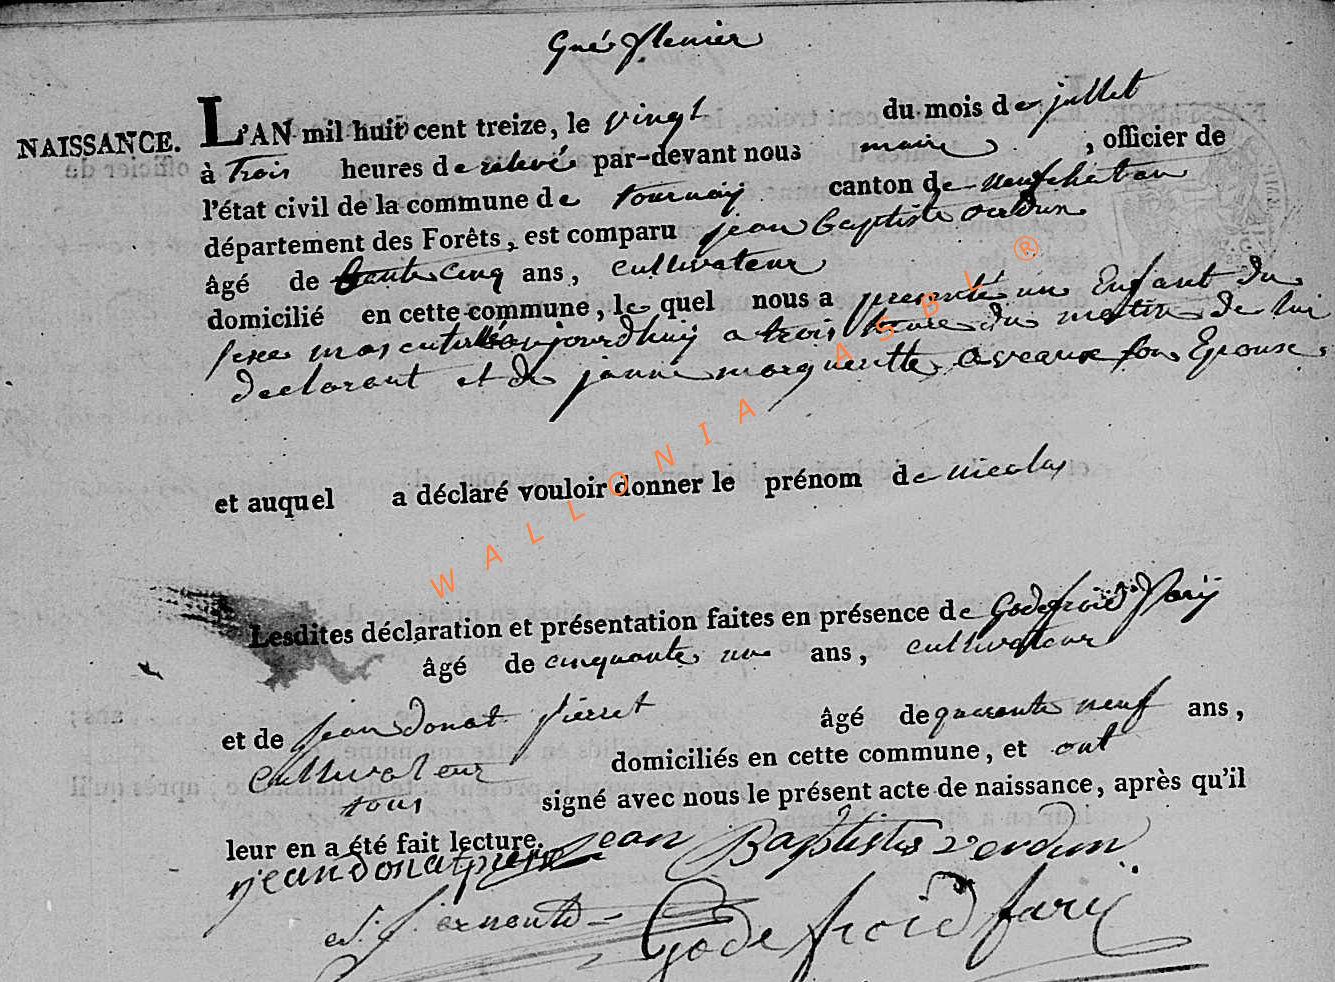 NAISSANCE. L'AN mil huit cent treize, le vingt du mois de juillet
à trois heures de relevé par-devant nous maire, officier de
l'état civil de la commune de tournay canton de neufchateau
département des Forêts, est comparu jean baptiste verdun
âgé de trente cinq ans, cultivateur
domicilié en cette commune, le quel nous a presenté un Enfant du
sexe masculin aujourdhuy a trois heure du matin de lui
declarant et de janne margueritte son Epouse.
et auquel a déclaré vouloir donner le prénom de nicolas
Lesdites déclaration et présentation faites en présence de Godefroid fary
âgé de cinquante un ans, cultivateur
et de jean donat pierret âgé de quarante neuf ans,
cultivateur domiciliés en cette commune, et ont
tous signé avec nous le présent acte de naissance, après qu'il
leur en a été fait lecture.
jean donat pierret jean Baptiste verdun
Godefroid farÿ
WALLONIA ASBL ®